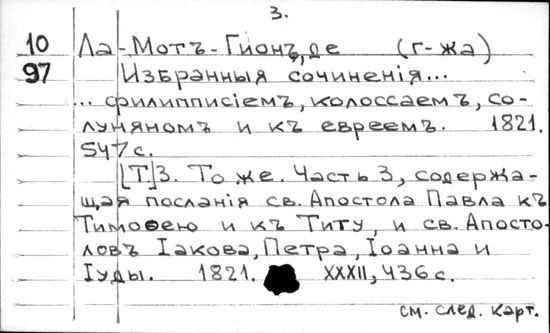 3.
10 Ла-Мотъ-Гионъ, де (г-жа)
97 Избранныя сочиненія...
... филипписіемъ, колоссаемъ, со-
луняномъ и къ евреемъ. 1821.
547 с.
[Т.]3. То же. Часть 3, содержа-
щая посланія св. Апостола Павла къ
Тимоѳею и къ Титу, и св. Апосто-
ловъ Іакова, Петра, Іоанна и
Іуды. 1821. XXXII, 436 с.
см. след. карт.